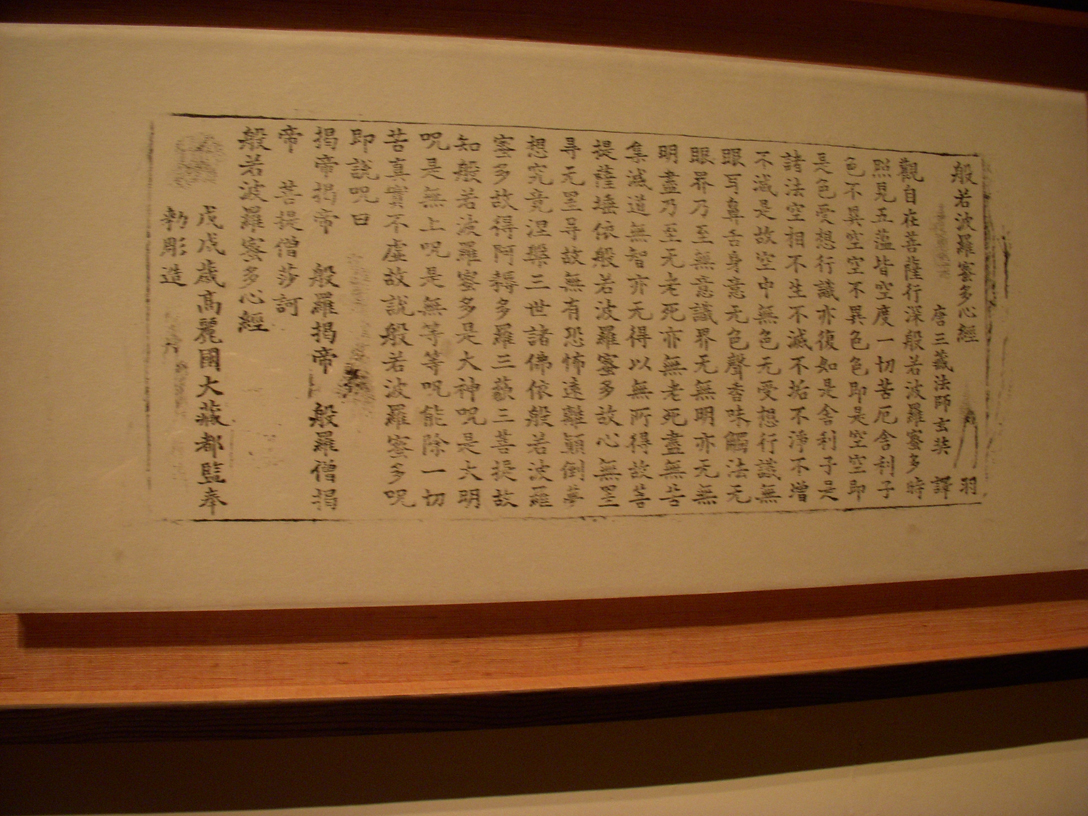 般若波羅蜜多心經 羽
唐三藏法師玄奘 譯
觀自在菩薩行深般若波羅蜜多時
照見五蘊皆空度一切苦厄舍利子
色不異空空不異色色即是空空即
是色受想行識亦復如是舍利子是
諸法空相不生不滅不垢不淨不增
不減是故空中無色无受想行識無
眼耳鼻舌身意无色聲香味觸法无
眼界乃至無意識界无無明亦无無
明盡乃至无老死亦無老死盡無苦
集滅道無智亦无得以無所得故菩
提薩埵依般若波羅蜜多故心無罣
㝵无罣㝵故無有恐怖遠離顛倒夢
想究竟涅槃三世諸佛依般若波羅
蜜多故得阿耨多羅三藐三菩提故
知般若波羅蜜多是大神呪是大明
呪是無上呪是無等等呪能除一切
苦真實不虛故說般若波羅蜜多呪
即說呪曰
揭帝揭帝 般羅揭帝 般羅僧揭
帝 菩提僧莎訶
般若波羅蜜多心經
戊戌歲高麗國大藏都監奉
勅彫造